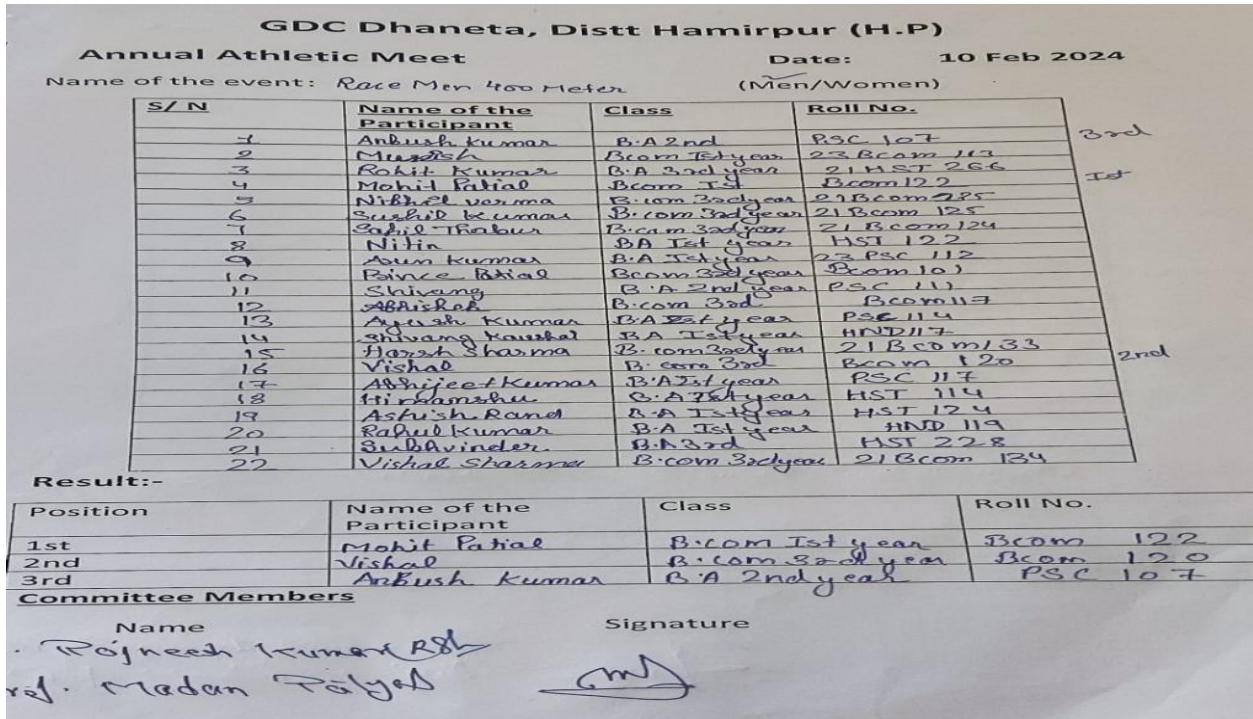 GDC Dhaneta, Distt Hamirpur (H.P)
Annual Athletic Meet Date: 10 Feb 2024
Name of the event: Race Men 400 Meter (Men/Women)
S/ N Name of the Participant Class Roll No.
1 Ankush Kumar B.A 2nd PSC 107 3rd
2 Bcom Ist year 23 Bcom 113
3 Rohit Kumar B.A 3rd year 21 HST 266
4 Mohit Patial Bcom Ist Bcom 122 Ist
5 Nikhil verma B.com 3rd year 21 Bcom
6 Sushil Kumar B.com 3rd year 21 Bcom 125
7 Sahil Thakur B.com 3rd year 21 Bcom 124
8 Nitin BA Ist year HST 122
9 Arun Kumar B.A Ist year 23 PSC 112
10 Prince Patial Bcom 3rd year Bcom 101
11 Shivang B.A 2nd year PSC 111
12 Abhishek B.com 3rd Bcom 117
13 Ayush Kumar B.A Ist year PSC 114
14 Shivang Kaushal BA Ist year HND 117
15 Harsh Sharma B.com 3rd year 21 Bcom 133
16 Vishal B.com 3rd Bcom 120 2nd
17 Abhijeet Kumar B.A Ist year PSC 117
18 Himanshu B.A Ist year HST 114
19 B.A Ist year HST 124
20 Rahul Kumar B.A Ist year HND 119
21 Sukhvinder B.A 3rd HST 228
22 Vishal Sharma B.com 3rd year 21 Bcom 134
Result:-
Position Name of the Participant Class Roll No.
1st Mohit Patial B.com Ist year Bcom 122
2nd Vishal B.com 3rd year Bcom 120
3rd Ankush Kumar B.A 2nd year PSC 107
Committee Members
Name Signature
Rajneesh Kumar
Madan